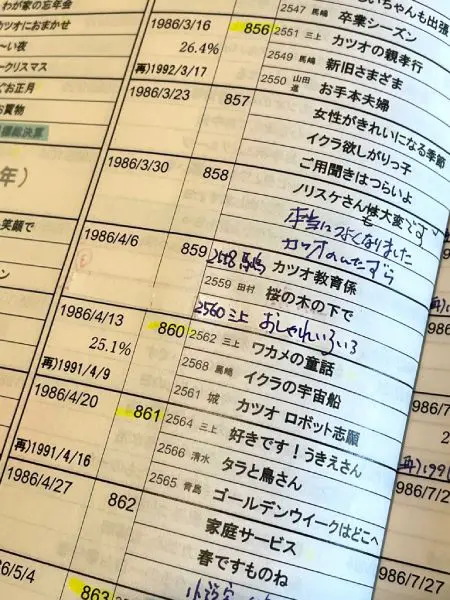 わが家の忘年会
カツオにおまかせ
～い夜
ークリスマス
ぐお正月
お買物
年）
笑顔で
2547 馬嶋 卒業シーズン
1986/3/16 856 2551 三上 カツオの親孝行
26.4% 2549 馬嶋 新旧さまざま
再)1992/3/17 2550 山田進 お手本夫婦
1986/3/23 857 女性がきれいになる季節
イクラ欲しがりっ子
ご用聞きはつらいよ
1986/3/30 858 ノリスケさんも大変です
本当に
カツオの
1986/4/6 859 2558 馬嶋 カツオ教育係
2559 田村 桜の木の下で
2560 三上 おしゃれいろいろ
1986/4/13 860 2562 三上 ワカメの童話
25.1% 2568 馬嶋 イクラの宇宙船
再)1991/4/9 2561 城 カツオ ロボット志願
1986/4/20 861 2564 三上 好きです！うきえさん
2566 清水 タラと鳥さん
再)1991/4/16 2565 青島 ゴールデンウイークはどこへ
1986/4/27 862 家庭サービス
春ですものね
6/5/4 863
1986/7/2
1986/7/27